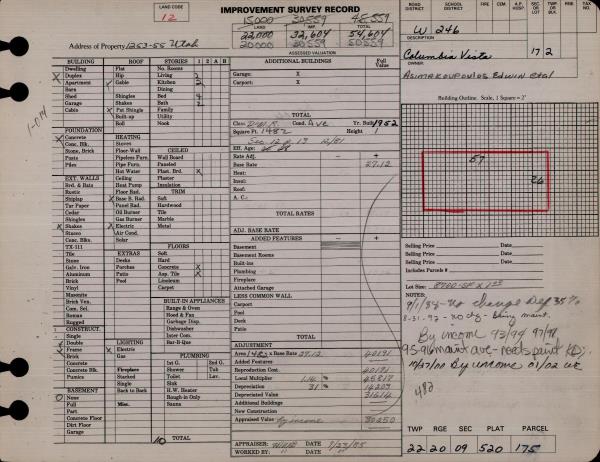 LAND CODE
12
IMPROVEMENT SURVEY RECORD
15,000 30,559 45,559
LAND IMP. TOTAL
22,000 32,604 54,604
20000 20559
ASSESSED VALUATION
Address of Property 1253-55 Utah
ROAD DISTRICT SCHOOL DISTRICT FIRE CEM. A.P. HOSP. SEC. OR LOT
W 246
DESCRIPTION
Columbia Vista 17 2
ASIMAKOPOULOS EDWIN etal
BUILDING
Dwelling
Duplex
Apartment
Barn
Shed
Garage
Cable
FOUNDATION
Concrete
Conc. Blk.
Stone, Brick
Posts
Piles
EXT. WALLS
Brd. & Bats
Rustic
Shiplap
Tar Paper
Cedar
Shingles
Shakes
Stucco
Conc. Blks.
TX-111
Tile
Stone
Galv. Iron
Aluminum
Brick
Vinyl
Masonite
Brick Ven.
Com. Sel.
Roman
Rugged
CONSTRUCT.
Double
Frame
Brick
Concrete
Concrete Blk.
Pumice
BASEMENT
None
Full
Part
Concrete Floor
Dirt Floor
Garage
ROOF
Flat
Hip
Gable
Shingles
Shakes
Pat Shingle
Built-up
Roll
HEATING
Stove
Floor-Wall
Pipeless Furn.
Pipe Furn.
Hot Water
Heat Pump
Floor Rad.
Base B. Rad.
Panel Rad.
Oil Burner
Gas Burner
Electric
Air Cond.
Solar
EXTRAS
Decks
Porches
Patio
Pool
LIGHTING
Electric
Gas
Fireplace
Stacked
Back to Back
Misc.
STORIES 1 2 A B
No. Rooms
Living 2
Kitchen 2
Dining
Bed 4
Bath 2
Family
Utility
Nook
CEILED
Wall Board
Paneled
Plast. Brd. X
Plaster
Insulation
TRIM
Soft
Hardwood
Tile
Marble
Metal
FLOORS
Soft
Hard
Concrete X
Asp. Tile X
Linoleum
Carpet
BUILT-IN APPLIANCES
Range & Oven
Hood & Fan
Garbage Disp.
Dishwasher
Inter Com.
Bar-B-Que
PLUMBING
1st G. 2nd G.
Shower Tub
Toilet Lav.
Sink
H. W. Heater
Rough-in Only
Sauna
10 TOTAL
ADDITIONAL BUILDINGS Full Value
Garage: X
Carport: X
TOTAL
Class DWR Cond. Ave Yr. Built 1952
Square Ft. 1482 Height 1
Eff. Age:
Rate Adj. - +
Base Rate 27.12
Heat:
Insul:
Roof:
A. C.:
TOTAL RATES
ADJ. BASE RATE
ADDED FEATURES - +
Basement
Basement Rooms
Built-ins
Plumbing
Fireplace
Attached Garage
LESS COMMON WALL
Carport
Pool
Deck
Patio
TOTAL
ADJUSTMENT
Area 1482 x Base Rate 27.12 40191
Added Features
Reproduction Cost 40191
Local Multiplier 1.14 % 45817
Depreciation 31 % 14203
Depreciated Value 31614
Additional Buildings
New Construction
Appraised Value by income 30250
WORKED BY: DATE
Building Outline. Scale, 1 Square = 2'
57
26
Selling Price Date
Selling Price Date
Selling Price Date
Includes Parcels #
NOTES:
9/1/84-No change Dep 35%
By income 93/94 97/98
95-96 maint ave - needs paint
10/27/00 By income 01/02
482
TWP RGE SEC PLAT PARCEL
22 20 09 520 175